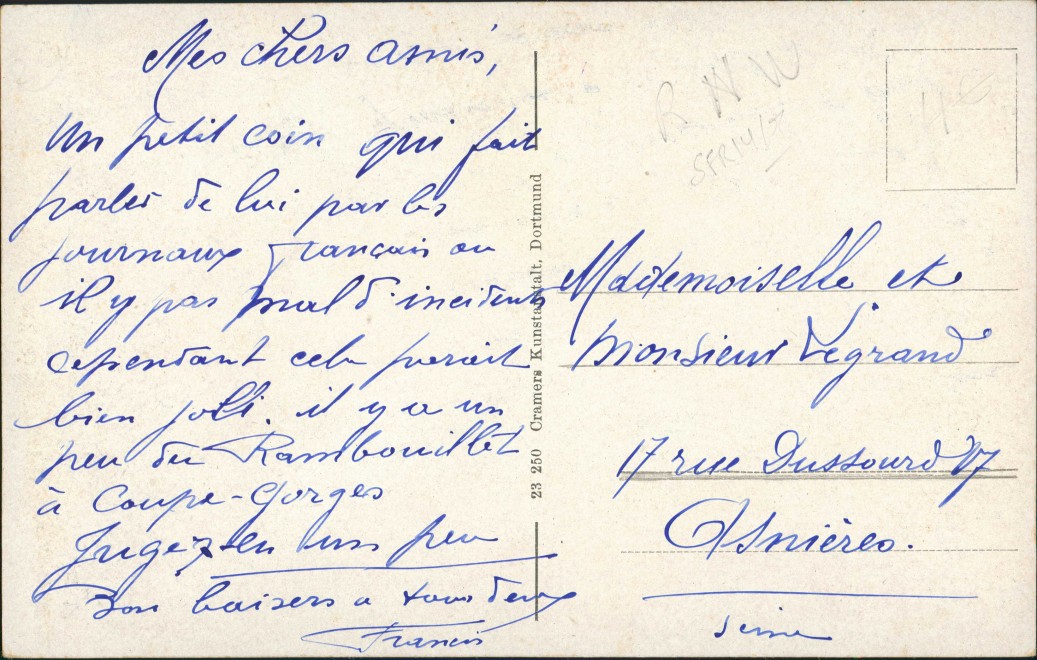 Mes chers amis,
Un petit coin qui fait
parler de lui par les
journaux Francais ou
il y pas mal d'incidents
cependant cela parait
bien joli. il y a un
peu du Rambouillet
à Coupe-Gorges
Jugez-en un peu
Bon baisers a tous deux
Francis
23 250 Cramers Kunstanstalt, Dortmund
Mademoiselle et
Monsieur Legrand
17 rue Dussourd 17
Asnières.
Seine